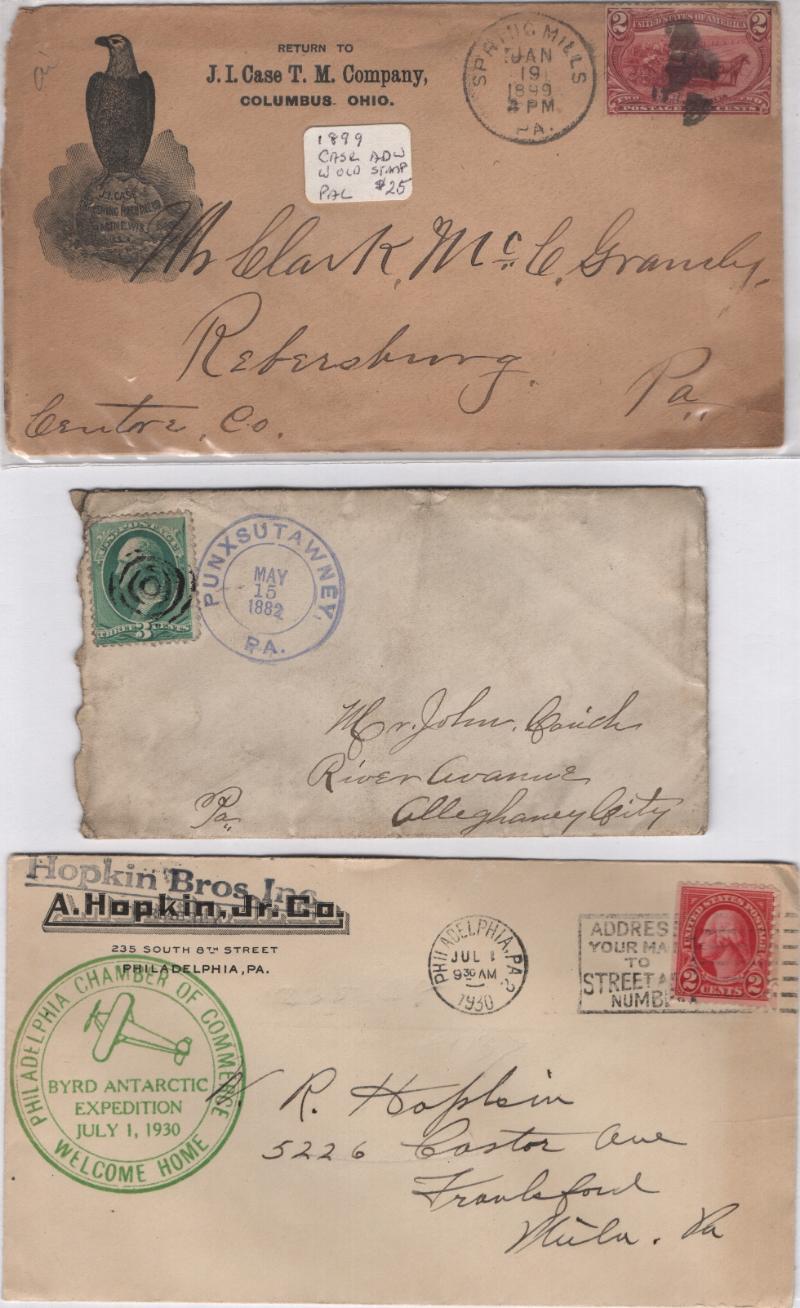 RETURN TO
J. I. Case T. M. Company,
COLUMBUS. OHIO.
J.I. CASE
RACINE, WIS.
U.S.A.
SPRING MILLS
JAN
19
1899
4 PM
PA.
2 UNITED STATES OF AMERICA 2
TWO POSTAGE CENTS
1899
CASE ADV
W OLD STAMP
PAL $25
Mr Clark, Mc. C.
Rebersburg. Pa
Centre, Co.
U.S. POSTAGE
THREE 3 CENTS
PUNXSUTAWNEY,
MAY
15
1882
PA.
Mr. John,
River Avanue
Pa Alleghaney City
Hopkin Bros, Inc.
A. Hopkin, Jr. Co.
235 SOUTH 8TH STREET
PHILADELPHIA, PA.
PHILADELPHIA, PA. 2
JUL 1
9 30 AM
1930
ADDRES
YOUR MA
TO
STREET A
NUMBE
UNITED STATES POSTAGE
2 CENTS 2
PHILADELPHIA CHAMBER OF COMMERSE
BYRD ANTARCTIC
EXPEDITION
JULY 1, 1930
WELCOME HOME
R. Hopkin
5226 Castor Ave
Frankford
Phila. Pa